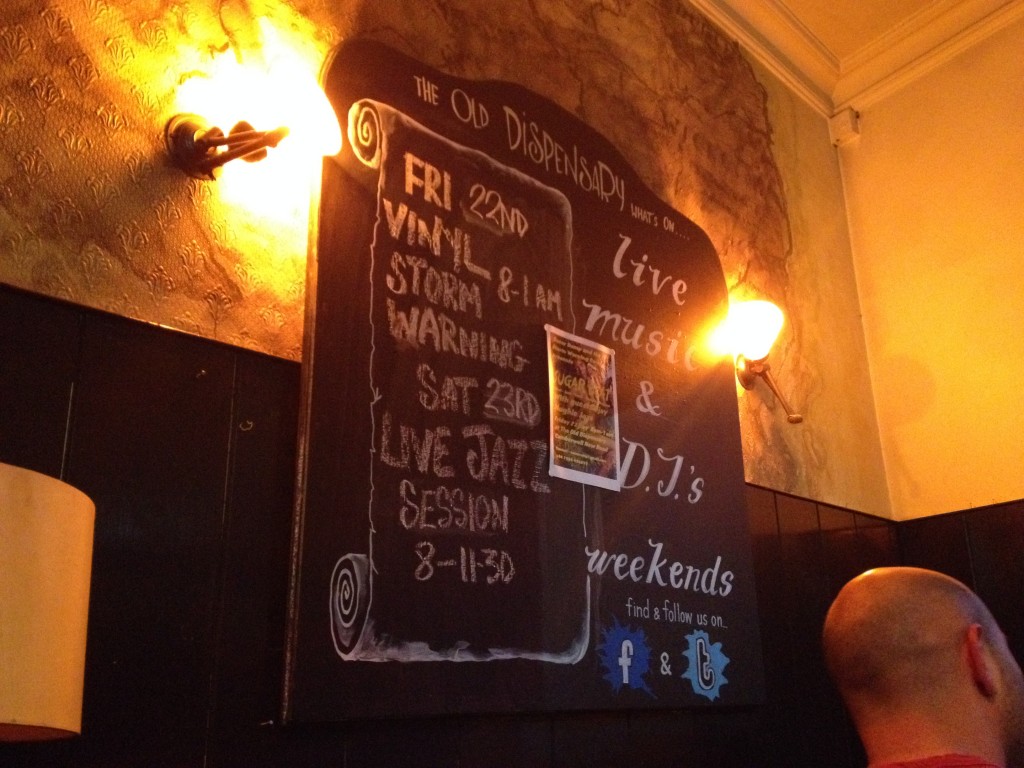 THE OLD DISPENSARY WHAT'S ON....
FRI 22ND
VINYL
STORM 8-1AM
WARNING
SAT 23RD
LIVE JAZZ
SESSION
8-11.30
live
music
&
D.J.'s
weekends
find & follow us on..
f & t